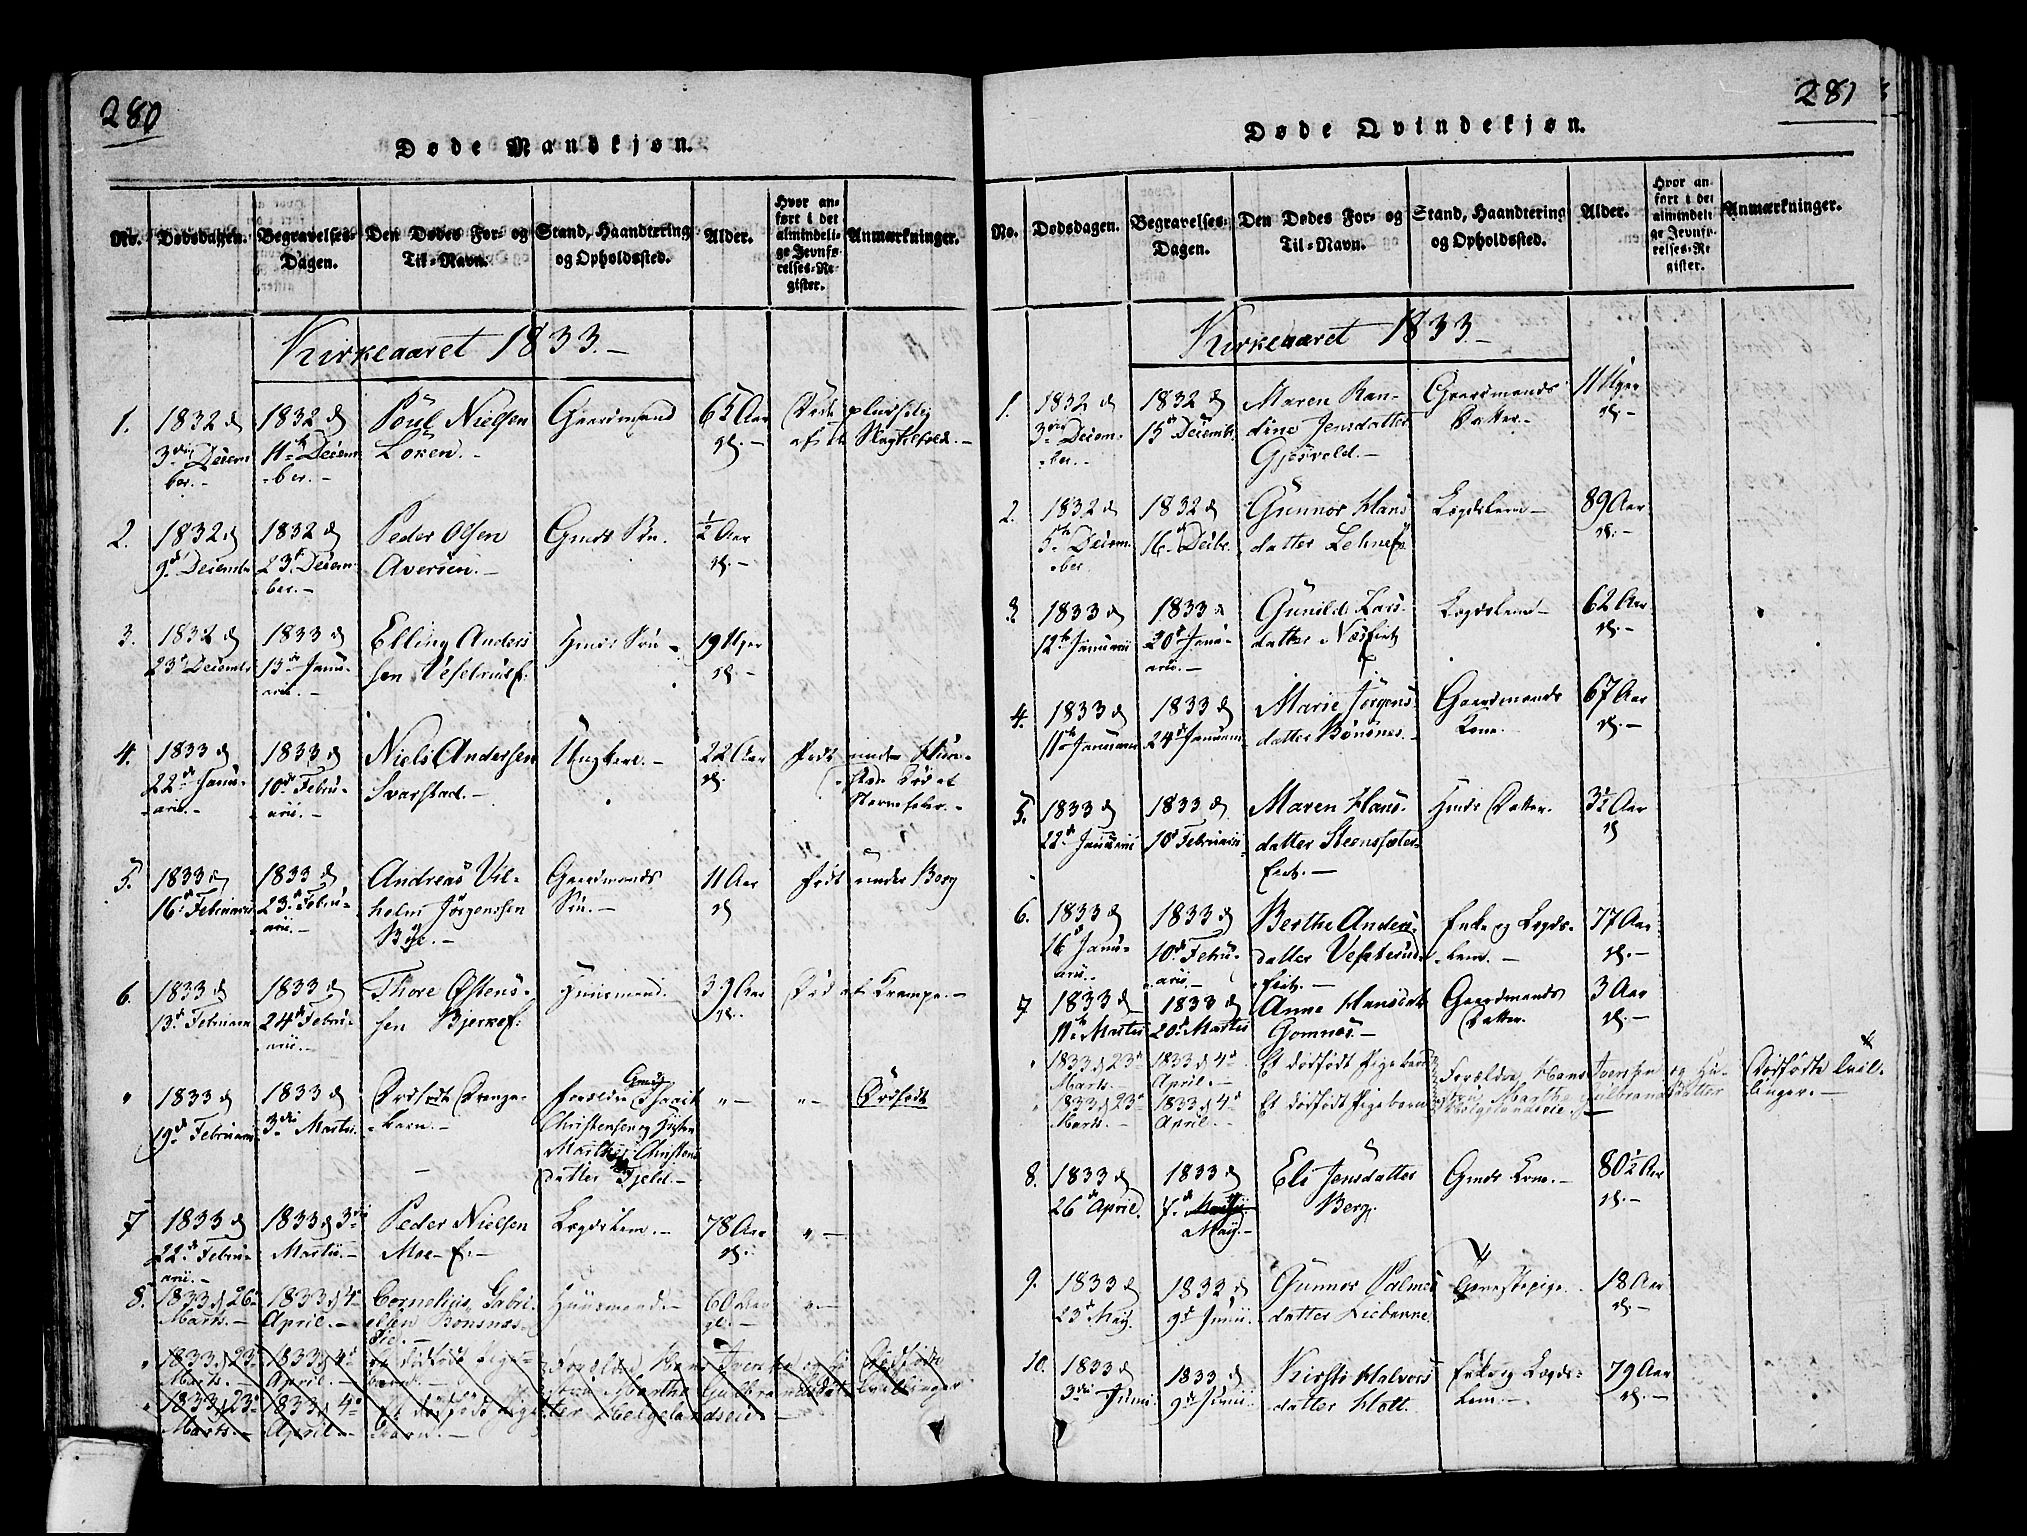 280
Døde Mandkjøn.
No.
Dødsdagen.
Begravelses-
Dagen.
Den Dødes For- og
Til-Navn.
Stand, Haandtering
og Opholdssted.
Alder.
Hvor an-
ført i det
almindeli-
ge Jevnfø-
relses-Re-
gister.
Anmærkninger.
Kirkeaaret 1833.–
1.
1832 d
3die Decem-
ber.–
1832 d
11te Decem-
ber.–
Poul Nielsen
Loken.–
Gaardmand
65 Aar
Døde pludselig
af et Slagtilfæld.–
2.
1832 d
9d Decembr
1832 d
23d Decem-
ber.–
Peder Olsen
Aversien.–
Gmds Søn.
½ Aar
3.
1832 d
23d Decembr
1833 d
13de Janu-
arii.–
Elling Anders
sen Veselruds
Hmds Søn
19 Uger
4.
1833 d
22de Janu-
arii.–
1833 d
10de Febru-
arii.–
Niels Anderssen
Svarstad.–
Ungkarl.–
22 Aar
Født under
Død af
Nervefeber.–
5.
1833 d
16d Februarii
1833 d
23d Febru-
arii.–
Andreas Vil-
helm Jørgenssen
Bye.–
Gaardmands
Søn.–
11 Aar
Født under Berg
6.
1833 d
13d Februarii
1833 d
24d Febru-
arii.–
Thore Østens-
sen Bjerkef:
Huusmand.
39 Aar
Død af Krampe.–
"
1833 d
19de Februarii
1833 d
3die Martii.
Dødfødt Drenge-
barn.–
Forældre Gmd
Christensen og Hustru
Marthe Christens
datter Fjeld.–
"–
"–
Dødfødt
7
1833 d
22de Febru-
arii.–
1833 d 3die
Martii.–
Peder Nielsen
Moe-
Lægdslem.–
78 Aar
"–
8.
1833 d 26de
Marts.–
1833 d 4de
April.–
Cornelius Gabri-
elsen Bonsnes-
Eie.–
Huusmand.–
60 Aar
"–
"
1833 d 23d
Marts.–
1833 d 4d
April.–
Et dødfødt Pige-
barn.–
Forældre Hans Iversen og Hu-
strue Marthe Gulbrandsdat-
Dødfødte
Tvillinger
"
1833 d 23d
Marts.–
1833 d 4d
April.–
Et dødfødt Pige
Barn.–
ter Helgelandseie–
281
Døde Qvindekjøn.
No.
Dødsdagen.
Begravelses-
Dagen.
Den Dødes For- og
Til-Navn.
Stand, Haandtering
og Opholdssted.
Alder.
Hvor an-
ført i det
almindeli-
ge Jevnfø-
relses-Re-
gister.
Anmærkninger.
Kirkeaaret 1833.–
1.
1832 d
3die Decem-
ber.–
1832 d
15d Decembr.
Maren Ran-
dine Jensdatter
Gjesvold.–
Gaardmands
Datter.–
11 Uger
2.
1832 d
5te Decem-
ber
1832 d
16d Decbr.
Gunnor Hans
datter Lehnef
Lægdslem–
89 Aar
3
1833 d
12te Januarii
1833 d
20d Janu-
arii.–
Gunild Lars
datter Næs
Lægdslem–
62 Aar
4.
1833 d
11te Januarii
1833 d
24d Januarii
Marie Jørgens
datter Bonsnes.–
Gaardmands
Kone.–
67 Aar
5.
1833 d
22de Januarii
1833 d
10d Februarii
Maren Hans-
datter Steensfæter-
Eiet.–
Hmds Datter.
3½ Aar
6.
1833 d
16d Janu-
arii.–
1833 d
10de Febru-
arii.–
Berthe Anders-
datter Vesterud-
eiet.–
Enke og Lægds-
lem.–
77 Aar
7
1833 d
11te Martii
1833 d
20d Martii
Anne Hansdat
Gomnes–
Gaardmands
Datter.
3 Aar
"
1833 d 23d
Marts.–
1833 d 4d
April.–
Et dødfødt Pigebarn
Forældre Hans Iversen og Hu-
strue Marthe Gulbrandsdatter
Dødfødte Tvil-
linger.–
"
1833 d 23d
Marts.–
1833 d 4d
April.–
Et dødfødt Pigebarn
Helgelandseie.–
8.
1833 d
26d April.
1833 d
7de
May.–
Eli Jensdatter
Berg.
Gmds Kone.–
80½ Aar
9.
1833 d
23d May.
1833 d
9d Junii
Gunnor Palmes
datter Liebanne.
Tjenestepige.
18 Aar
10.
1833 d
3die Junii
1833 d
9de Junii
Kirsti Halvors
datter Holt.
Enke og Lægds-
lem.–
79 Aar